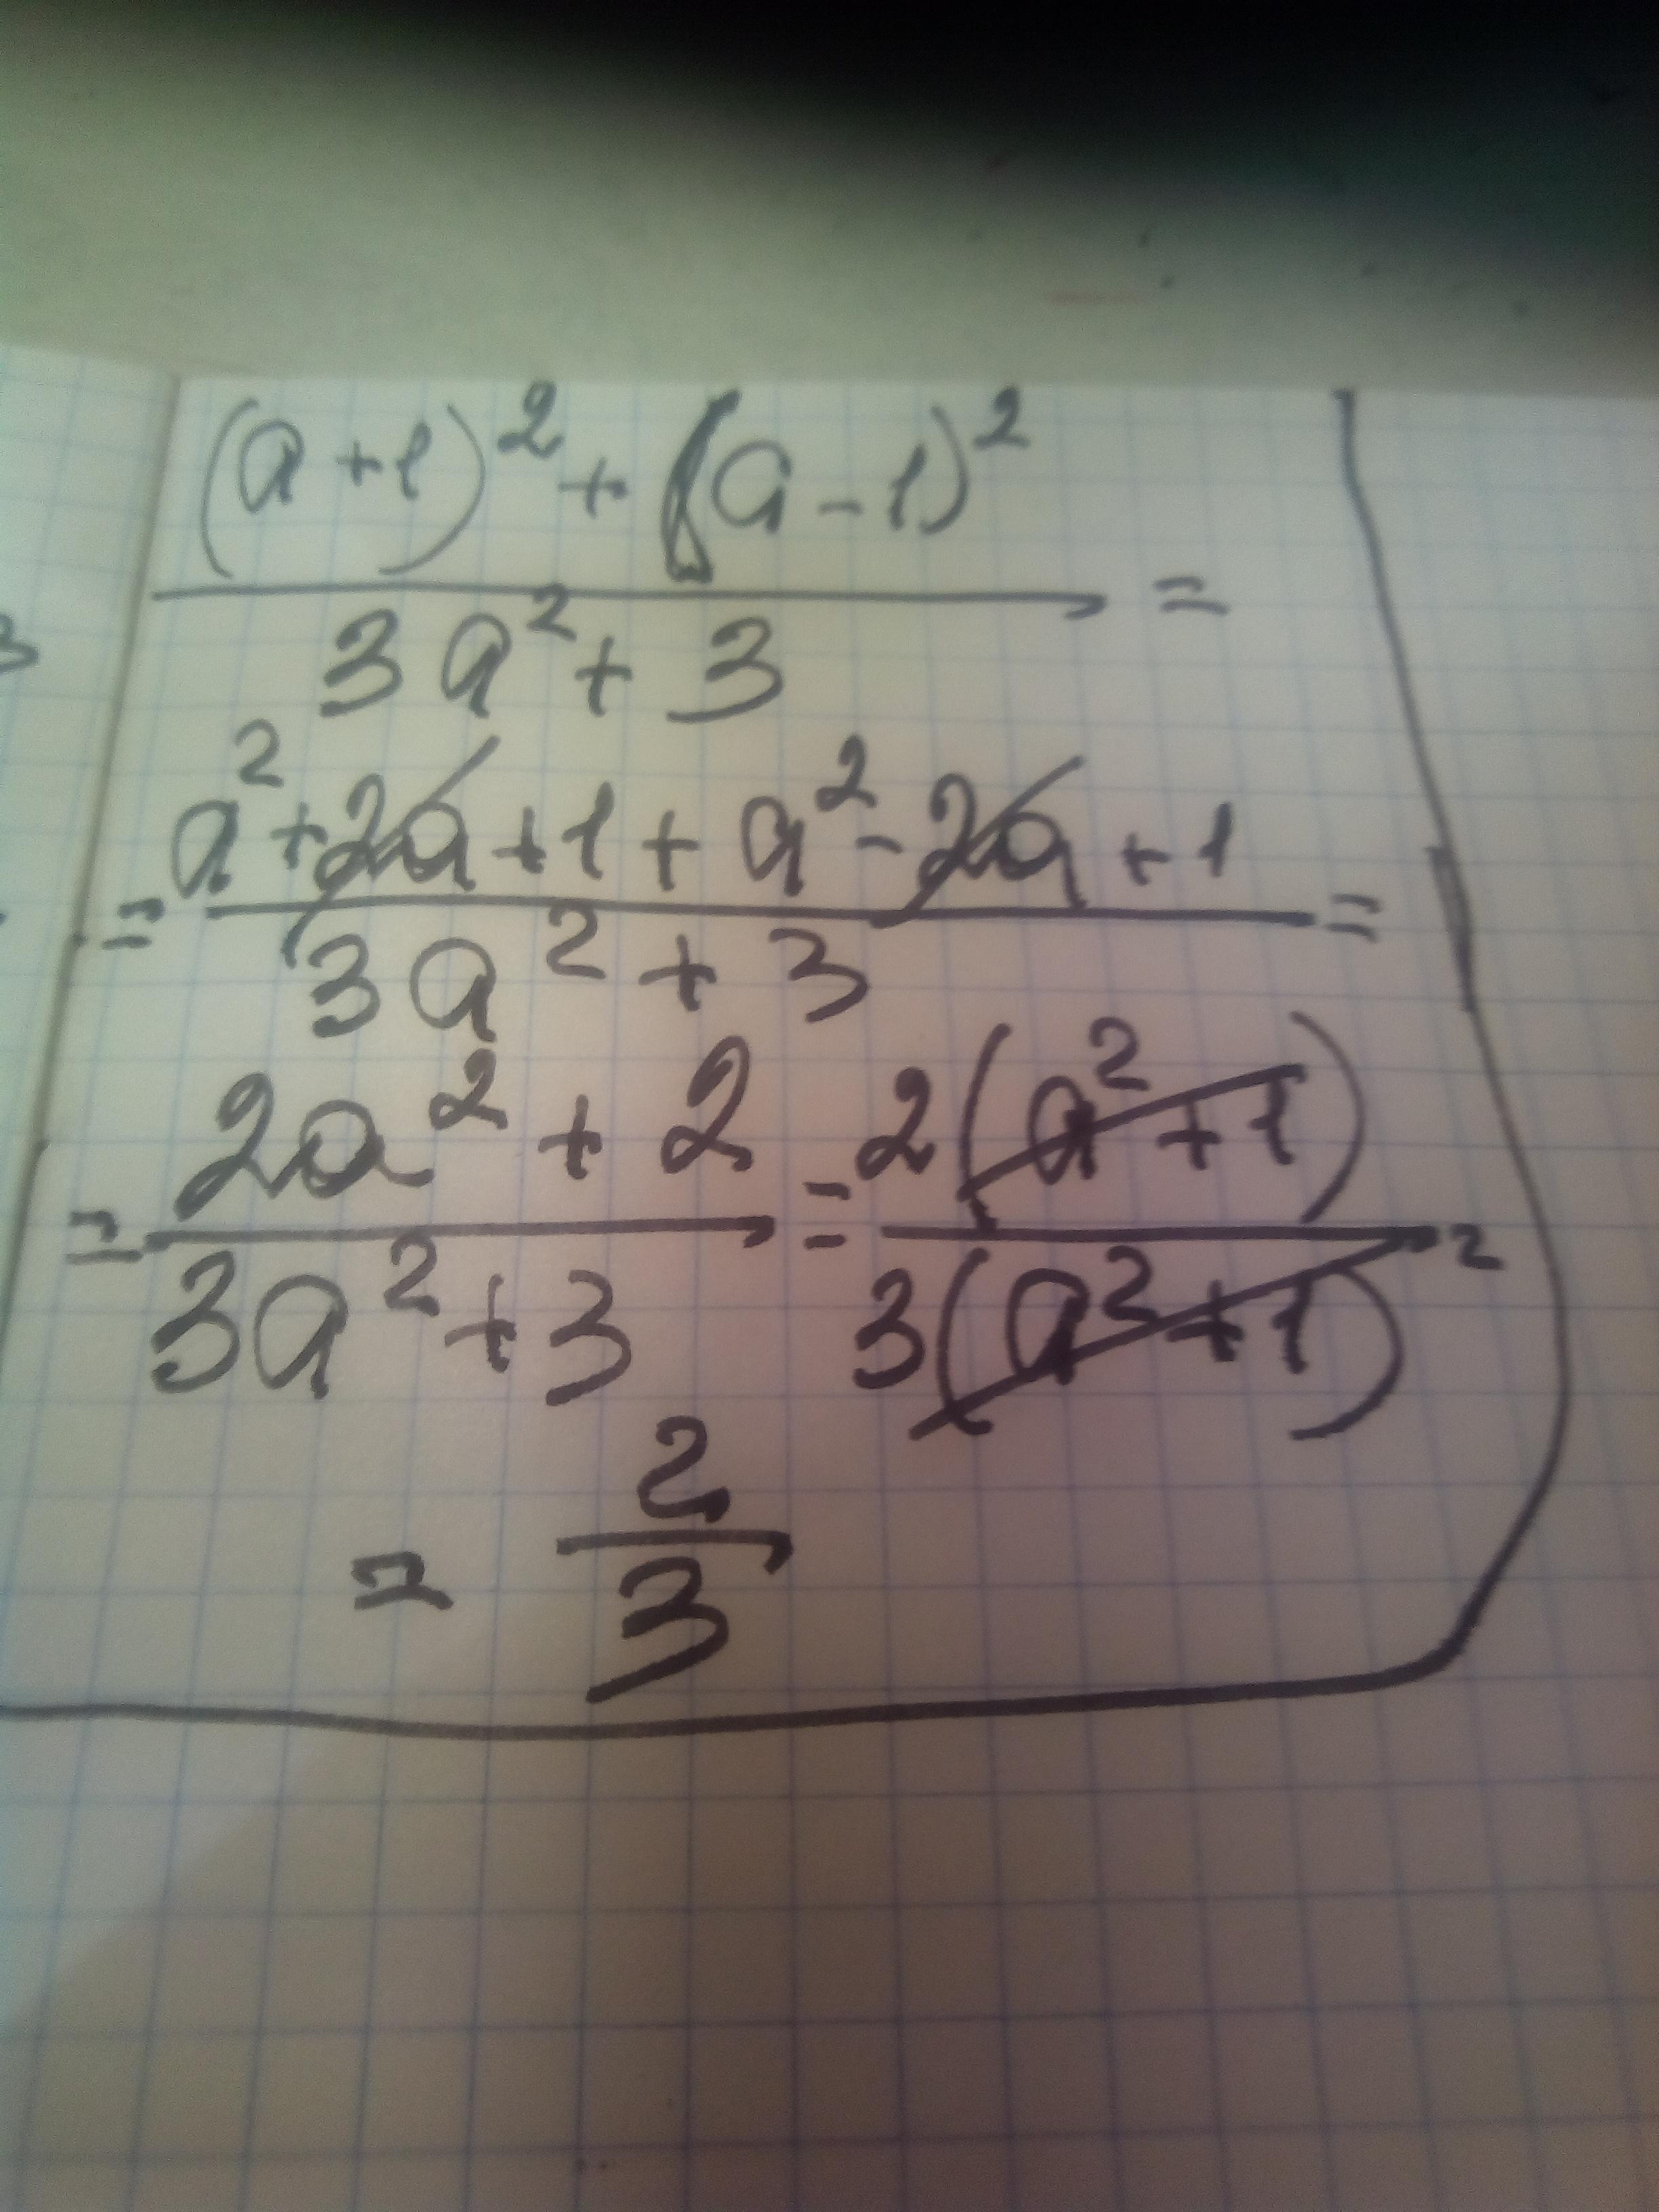 ((a+1)² + (a-1)²)/(3a² + 3) =
= (a² + 2a + 1 + a² - 2a + 1)/(3a² + 3) =
= (2a² + 2)/(3a² + 3) = 2(a² + 1)/3(a² + 1) =
= 2/3